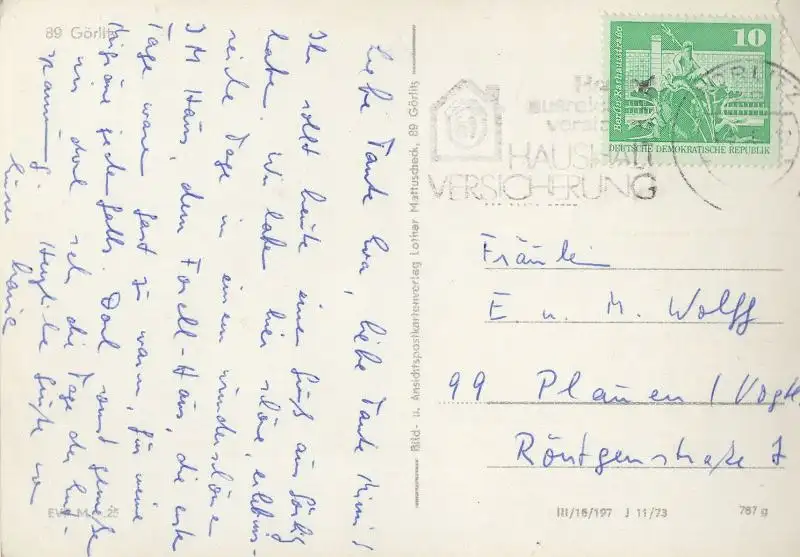 89 Görlitz
Liebe Tante Eva, liebe Tante Mimi!
Ihr sollt heute einen Gruß aus Görlitz
haben. Wir haben hier schöne, erlebnis-
reiche Tage in einem wunderschönen
Haus, dem Forell-Haus, die erste
Tage waren fast zu warm, für meine
jedenfalls. Doch sonst genieße
wir doch sehr die Tage der
spannung. Herzliche Grüße von
Eurer
EVP M 0.25
Bild- u. Ansichtspostkartenverlag Lothar Mattuscheck, 89 Görlitz
HAUSHALT
VERSICHERUNG
GÖRLITZ
10
Berlin·Rathausstraße
DEUTSCHE DEMOKRATISCHE REPUBLIK
Fräulein
E. u. M. Wolff
99 Plauen / Vogtl.
Röntgenstraße 7
III/18/197 J 11/73 787 g